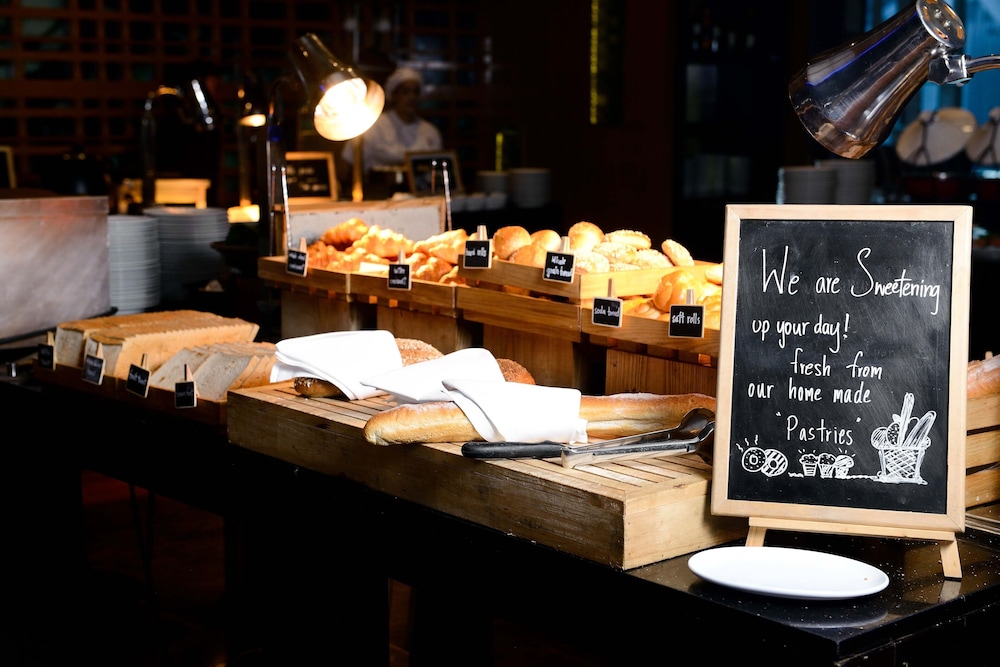 We are Sweetening
up your day!
fresh from
our home made
"Pastries"
hard rolls
Whole
grain bread
soda bread
soft rolls